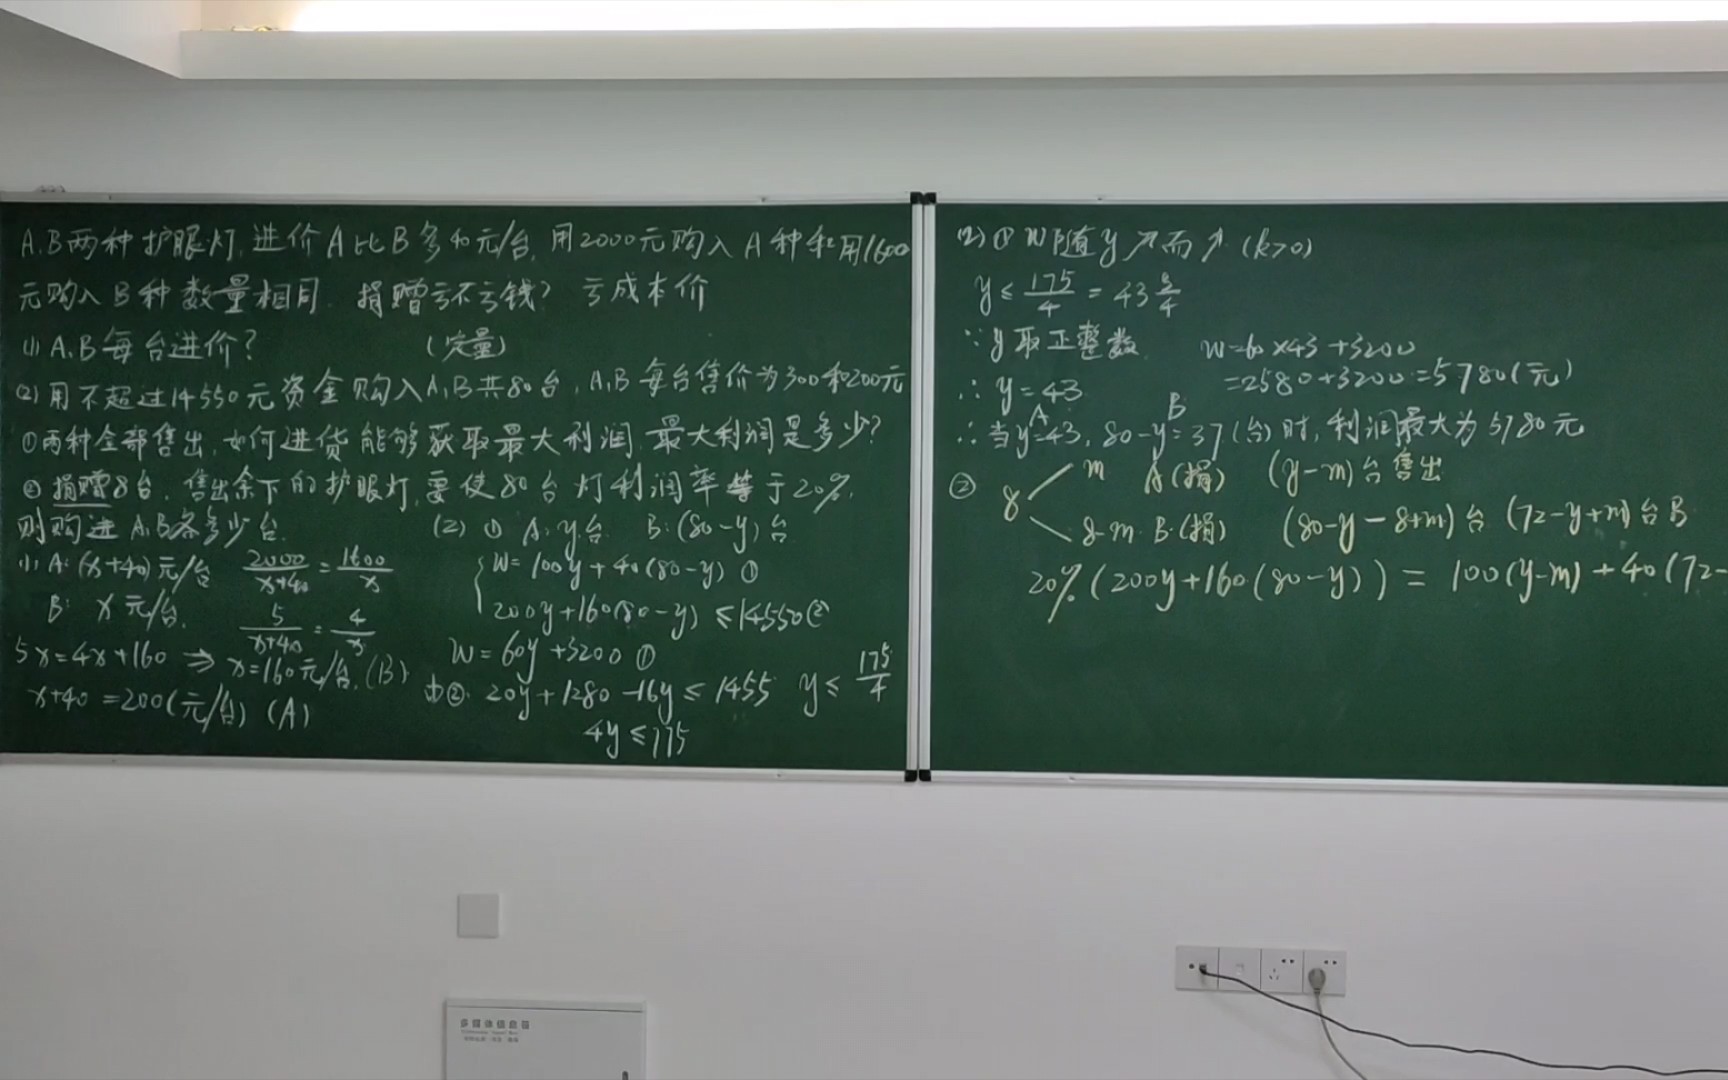 A.B两种护眼灯,进价A比B多40元/台,用2000元购入A种和用1600
元购入B种数量相同. 捐赠亏不亏钱? 亏成本价
(1) A.B每台进价? (定量)
(2) 用不超过14550元资金购入A,B共80台, A,B每台售价为300和200元
①两种全部售出,如何进货能够获取最大利润,最大利润是多少?
②捐赠8台,售出余下的护眼灯,要使80台灯利润率等于20%,
则购进A.B各多少台.
(1) A:(x+40)元/台 2000/(x+40)=1600/x
B: x元/台. 5/(x+40)=4/x
5x=4x+160 ⇒ x=160元/台.(B)
x+40=200(元/台) (A)
(2) ① A:y台 B:(80-y)台
{ W=100y+40(80-y) ①
200y+160(80-y)≤14550②
W=60y+3200 ①
由②. 20y+1280-16y≤1455 y≤175/4
4y≤175
(2) ① W随y↗而↗(k>0)
y≤175/4=43 3/4
∵y取正整数 W=60×43+3200
∴y=43 =2580+3200=5780(元)
A B
∴当y=43, 80-y=37(台)时,利润最大为5780元
② 8 m A(捐) (y-m)台售出
8-m B(捐) (80-y-8+m)台 (72-y+m)台B
20%(200y+160(80-y))=100(y-m)+40(72-
多媒体信息箱